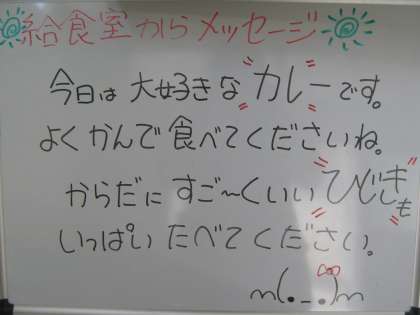 給食室からメッセージ
今日は大好きなカレーです。
よくかんで食べてくださいね。
からだにすご〜くいいひじきも
いっぱいたべてください。
m(._.)m